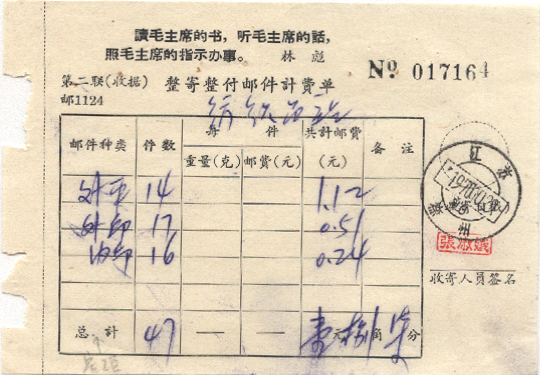 讀毛主席的书，听毛主席的話，
照毛主席的指示办事。 林彪
№ 017164
第二联(收据) 整寄整付邮件計費单
邮1124
邮件种类 件数 每件 共計邮費(元) 备注
重量(克) 邮費(元)
外平 14 1.12
外印 17 0.51
内印 16 0.24
总計 47 — — 壹元捌角柒分
江苏
州
收寄人员签名